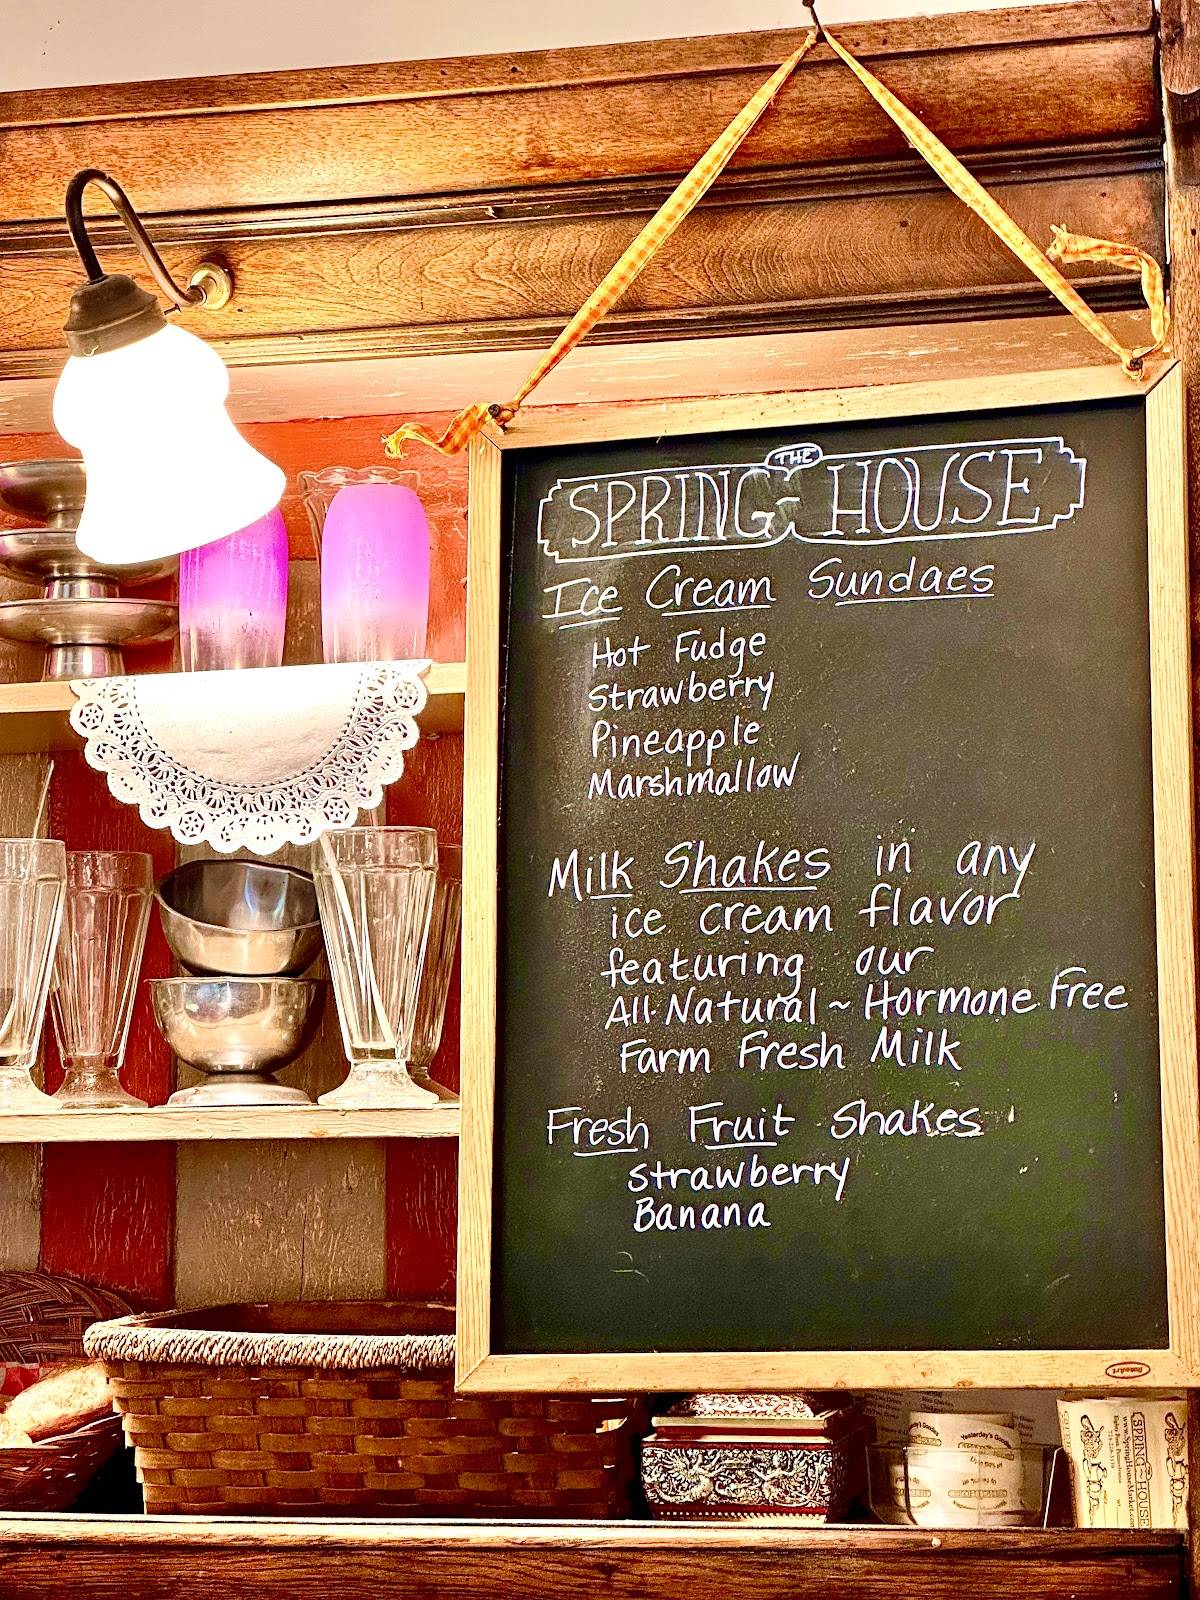 THE
SPRING-HOUSE
Ice Cream Sundaes
Hot Fudge
Strawberry
Pineapple
Marshmallow
Milk Shakes in any
ice cream flavor
featuring our
All-Natural ~ Hormone Free
Farm Fresh Milk
Fresh Fruit Shakes
Strawberry
Banana
Yesterday's
SPRING HOUSE